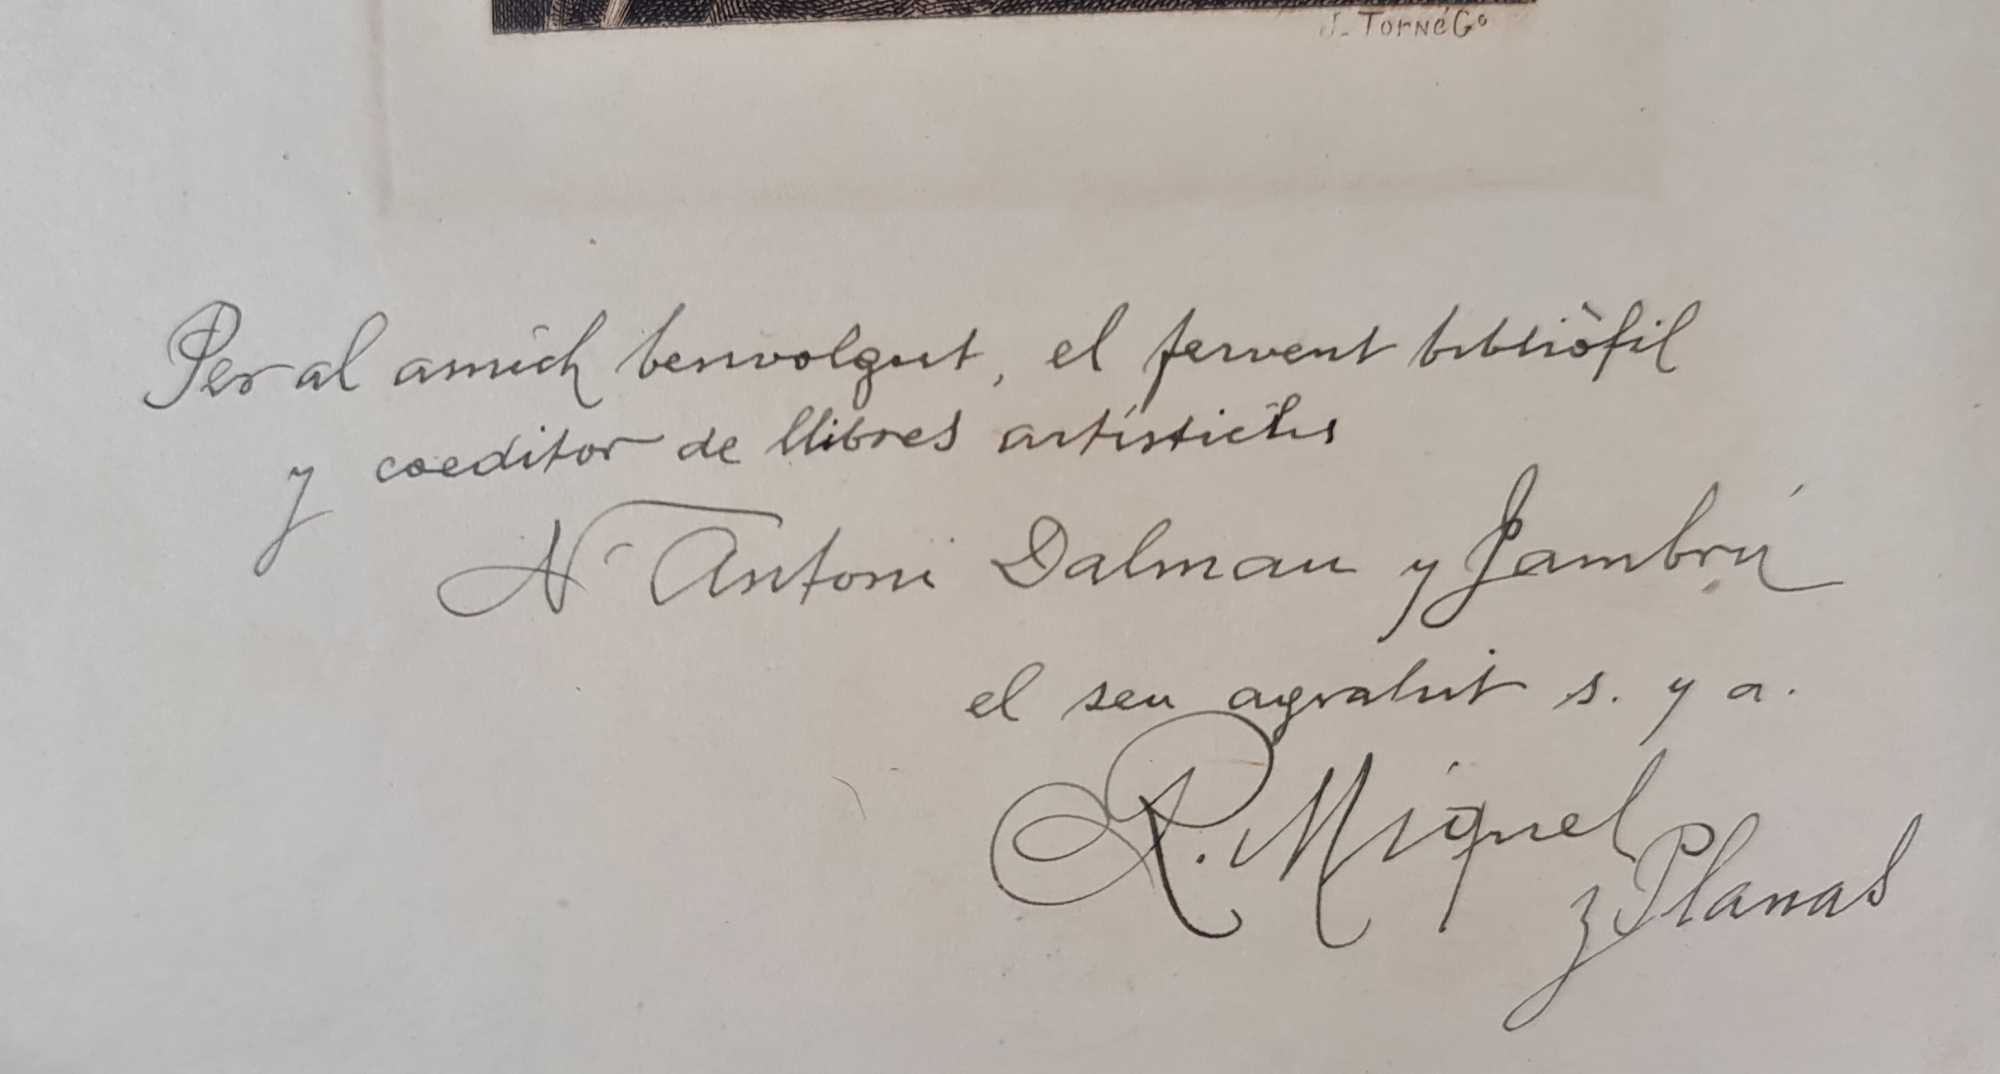 J. Torné Gº
Per al amich benvolgut, el fervent bibliòfil
y coeditor de llibres artístichs
N'Antoni Dalmau y Jambrú
el seu agrahit s. y a.
R. Miquel
y Planas